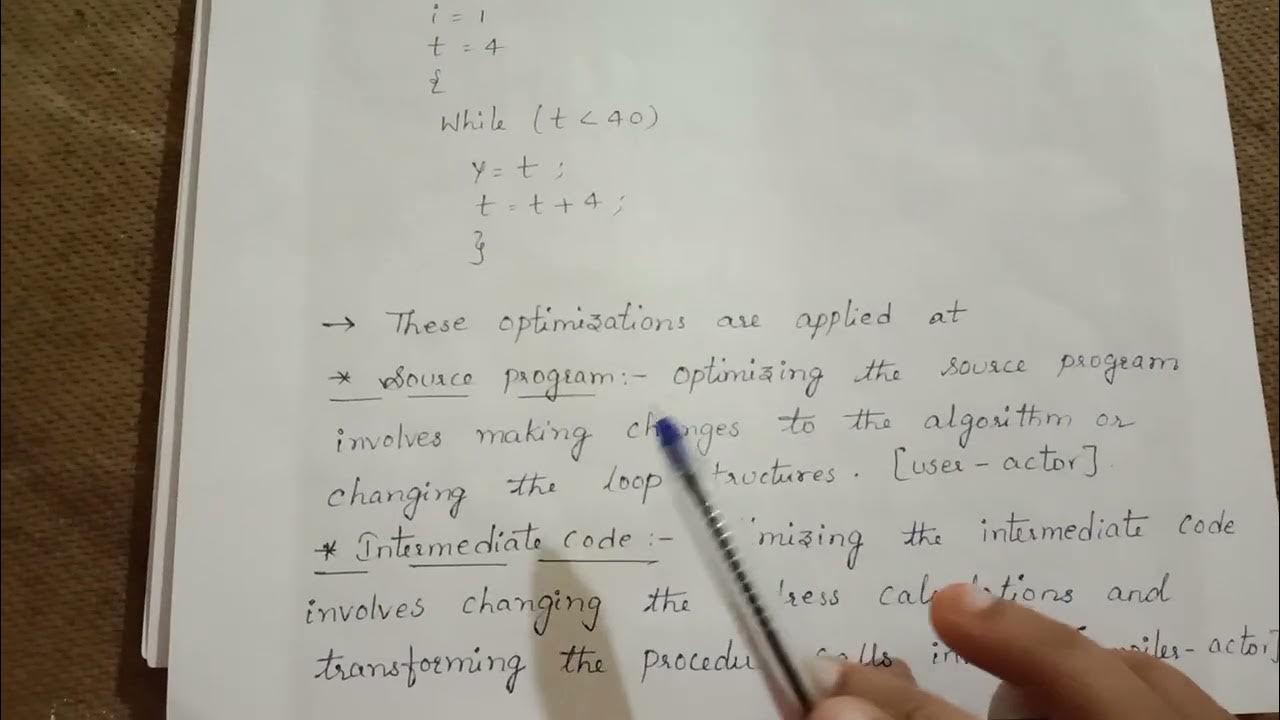 i = 1
t = 4
{
While (t < 40)
y = t ;
t = t + 4 ;
}
→ These optimizations are applied at
* Source program :- optimizing the source program
involves making changes to the algorithm or
changing the loop structures. [user - actor]
* Intermediate code :- the intermediate code
involves changing the and
transforming the calls